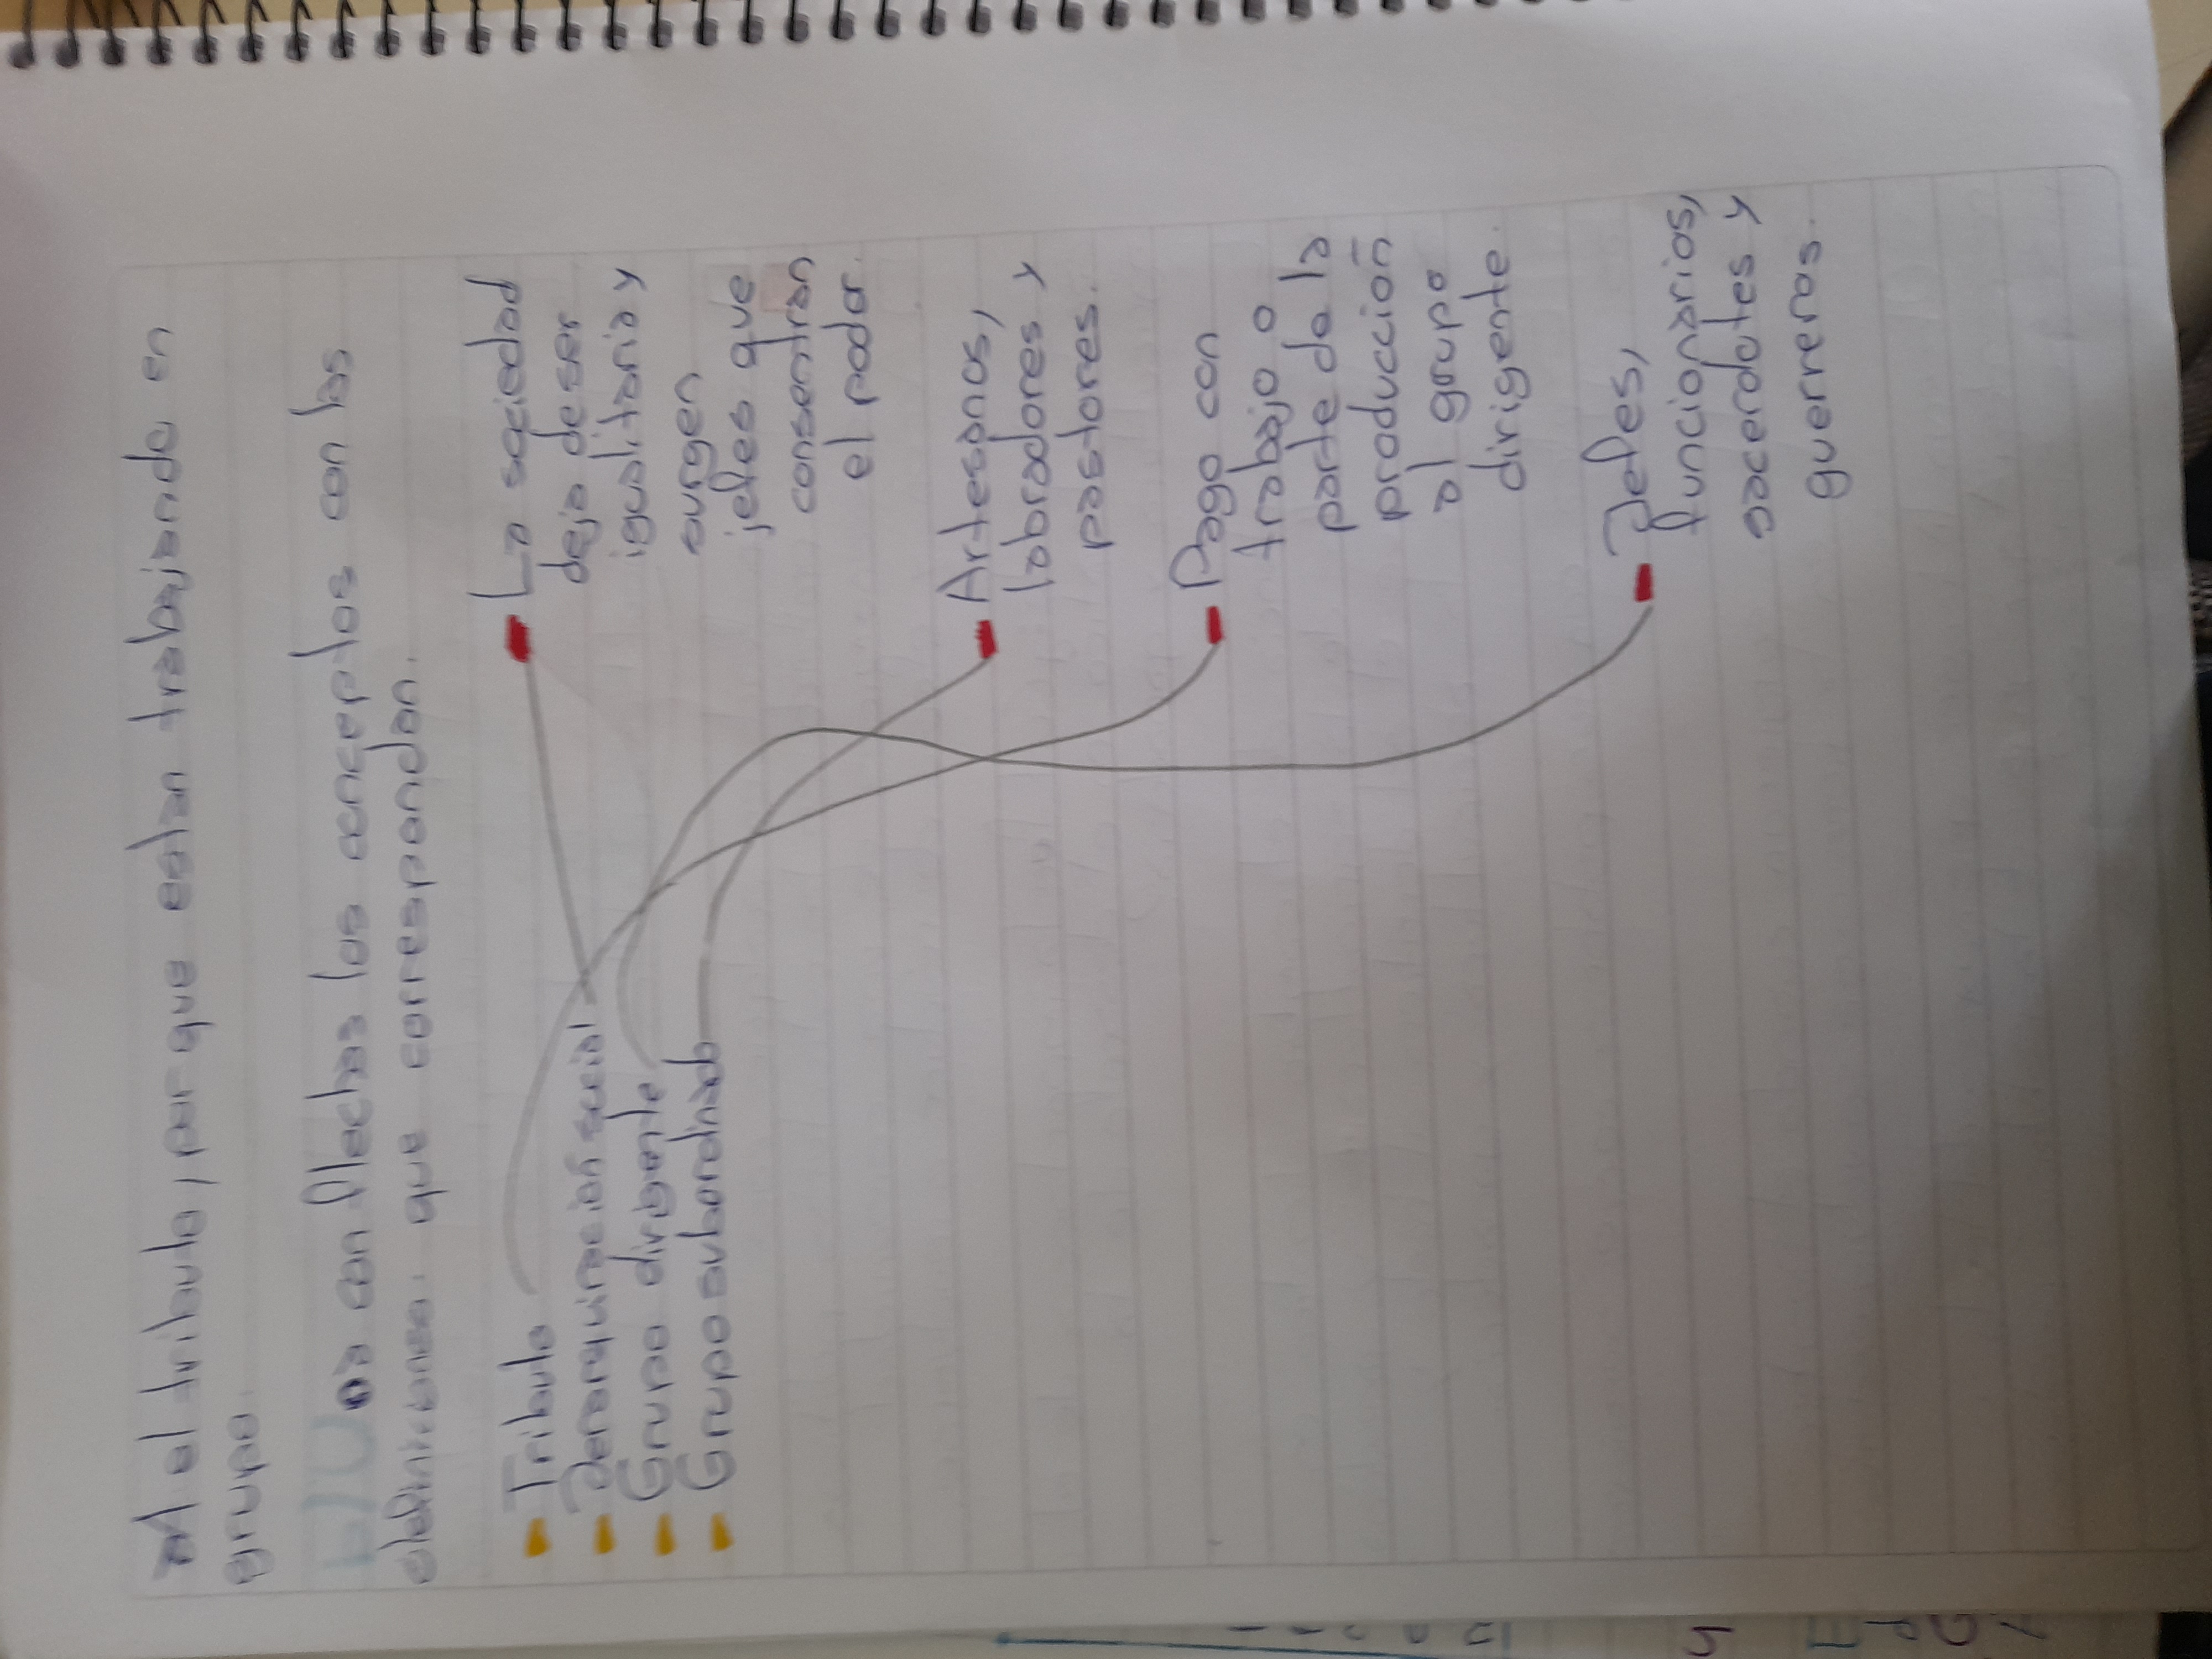 al el tributo, por que estan trabajando en
grupo.
con flechas los conceptos con las
definiciones que correspondan.
Tributo
Jerarquización social
Grupo dirigente
Grupo subordinado
La sociedad
deja de ser
igualitaria y
surgen
jefes que
consentran
el poder.
Artesanos,
labradores y
pastores.
Pago con
trabajo o
parte de la
producción
al grupo
dirigente.
Jefes,
funcionarios,
sacerdotes y
guerreros.